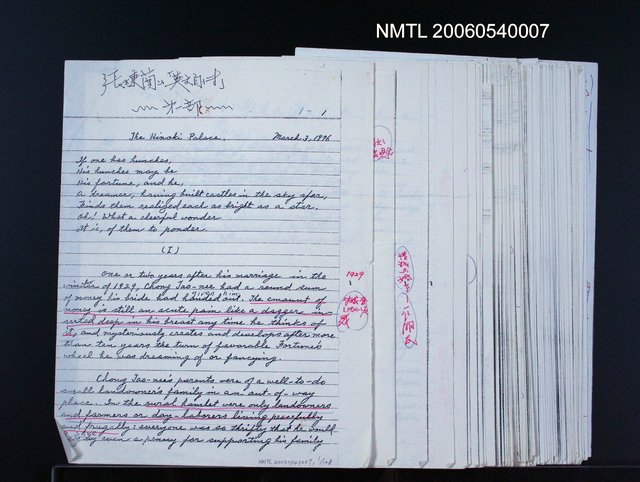 NMTL 20060540007
1-1
The Hinoki Palace. March 3, 1996
If one has hunches,
His hunches may be
His fortune, and he,
a dreamer, having built castles in the sky afar,
Finds them realized each as bright as a star.
Oh! What a cheerful wonder
It is, of them to ponder.
(I)
One or two years after his marriage in the
winter of 1929, Chong Tao-nee had a round sum
of money his bride had handed out. The amount of
money is still an acute pain like a dagger in-
serted deep in his breast any time he thinks of
it, and mysteriously creates and develops after more
than ten years the turn of favorable Fortune's
wheel he was dreaming of or fancying.
Chong Tao-nee's parents were of a well-to-do
small landowner's family in an out-of-way
place. In the rural hamlet were only landowners
and farmers or day-laborers living peacefully
and frugally: everyone was so thrifty that he would
even a penny for supporting his family
1929
NMTL 20060540007, 1/108